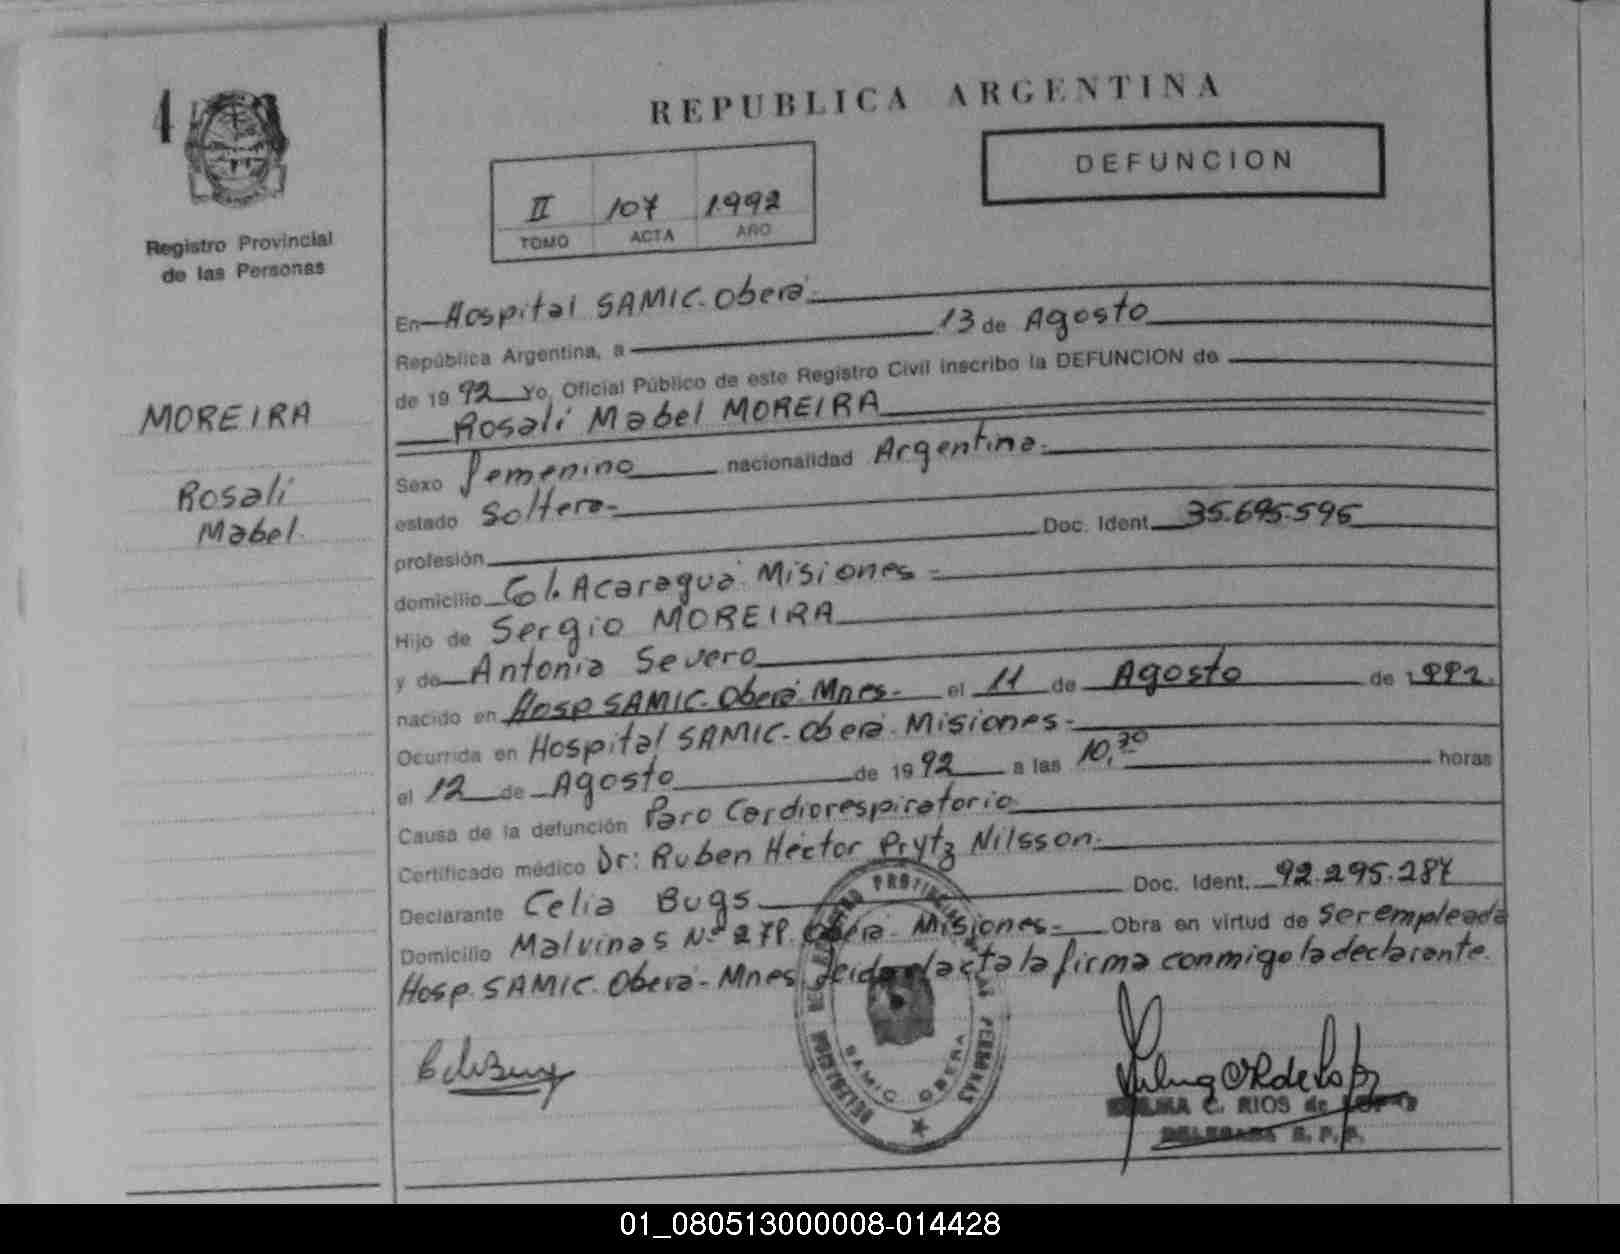 4
REPUBLICA ARGENTINA
DEFUNCION
II 107 1992
TOMO ACTA AÑO
Registro Provincial
de las Personas
MOREIRA
Rosali
Mabel.
En Hospital SAMIC-Oberá-
República Argentina, a 13 de Agosto
de 1992 Yo, Oficial Público de este Registro Civil inscribo la DEFUNCION de
Rosalí Mabel MOREIRA
Sexo femenino nacionalidad Argentina-
estado Soltera-
profesión Doc. Ident. 35.695.595
domicilio Col. Acaraguá Misiones-
Hijo de Sergio MOREIRA
y de Antonia Severo
nacido en Hosp SAMIC-Oberá Mnes- el 11 de Agosto de 1992.
Ocurrida en Hospital SAMIC-Oberá-Misiones-
el 12 de Agosto de 1992 a las 10,30 horas
Causa de la defunción Paro Cardiorespiratorio
Certificado médico Dr: Ruben Héctor Prytz Nilsson-
Declarante Celia Bugs Doc. Ident. 92.295.287
Domicilio Malvinas Nº 279. Oberá-Misiones- Obra en virtud de Ser empleada
Hosp. SAMIC-Oberá-Mnes leida el acta la firma conmigo la declarante.
DELEGACION REGISTRO PROVINCIAL DE LAS PERSONAS
SAMIC OBERA
C. RIOS de LOPEZ
DELEGADA R. P. P.
01_080513000008-014428